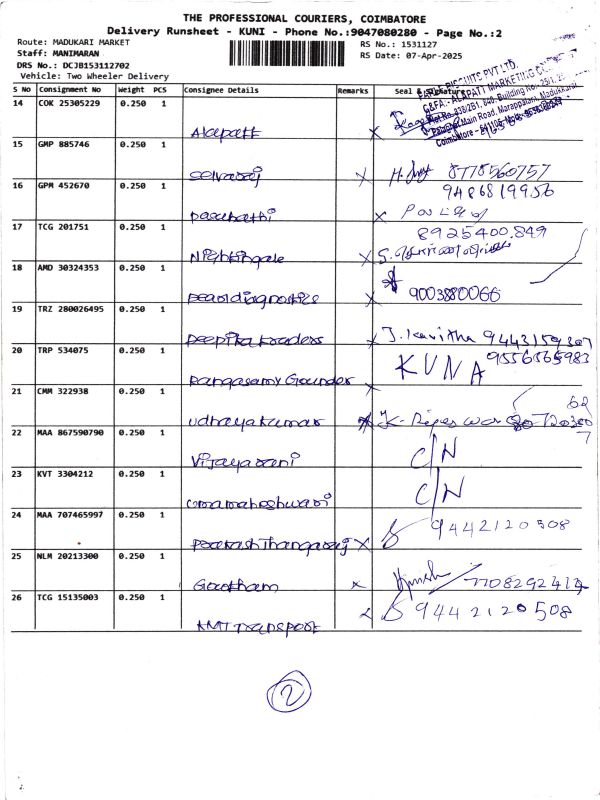 THE PROFESSIONAL COURIERS, COIMBATORE
Delivery Runsheet - KUNI - Phone No.:9047080280 - Page No.:2
Route: MADUKARI MARKET
RS No.: 1531127
Staff: MANIMARAN
RS Date: 07-Apr-2025
DRS No.: DCJB153112702
Vehicle: Two Wheeler Delivery
S No Consignment No Weight PCS Consignee Details Remarks Seal & Signature
EAGLE BISCUITS PVT LTD
C&FA - ALAPATT MARKETING
14 COK 25305229 0.250 1 Alapatt X
15 GMP 885746 0.250 1 Selvaraj X 8778560757
16 GPM 452670 0.250 1 Pasupathi X 9486819956
17 TCG 201751 0.250 1 Nightingale X 8925400849
18 AMD 30324353 0.250 1 X 9003880066
19 TRZ 280026495 0.250 1 Deepika traders X J. Kavitha
20 TRP 534075 0.250 1 Rangasamy Gounder X KUNA 9556565983
21 CMM 322938 0.250 1 Udhayakumar
22 MAA 867590790 0.250 1 Vijayarani C/N
23 KVT 3304212 0.250 1 Umamaheshwari C/N
24 MAA 707465997 0.250 1 Prakash Thangaraj X 9442120508
25 NLM 20213300 0.250 1 Gowtham X
26 TCG 15135003 0.250 1 KMT Transport X 9442120508
2